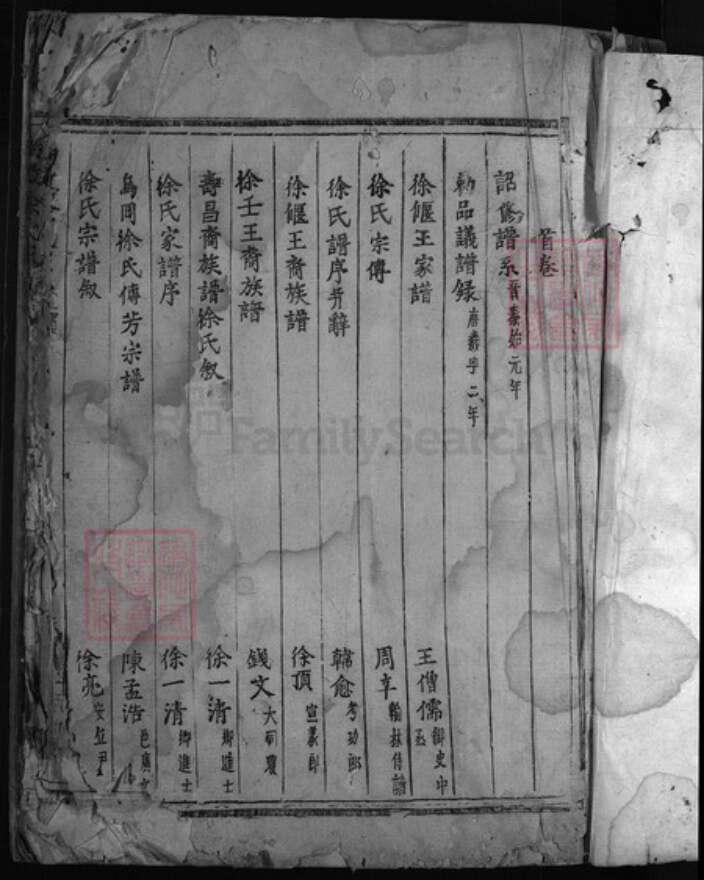 首卷
詔修譜系 晉泰始元年
勅品議譜錄 唐乾寧二年
徐偃王家譜 王僧儒 御史中丞
徐氏宗傳 周幸 翰林侍讀
徐氏譜序并辭 韓愈 考功郎
徐偃王裔族譜 徐頂 宣義郎
徐王王裔族譜 錢文 大司農
壽昌裔族譜徐氏叙 徐一清 鄉進士
徐氏家譜序 徐一清 鄉進士
烏岡徐氏傳芳宗譜 陳孟浩 邑廣文
徐氏宗譜叙 徐亮 安丘尹
FamilySearch